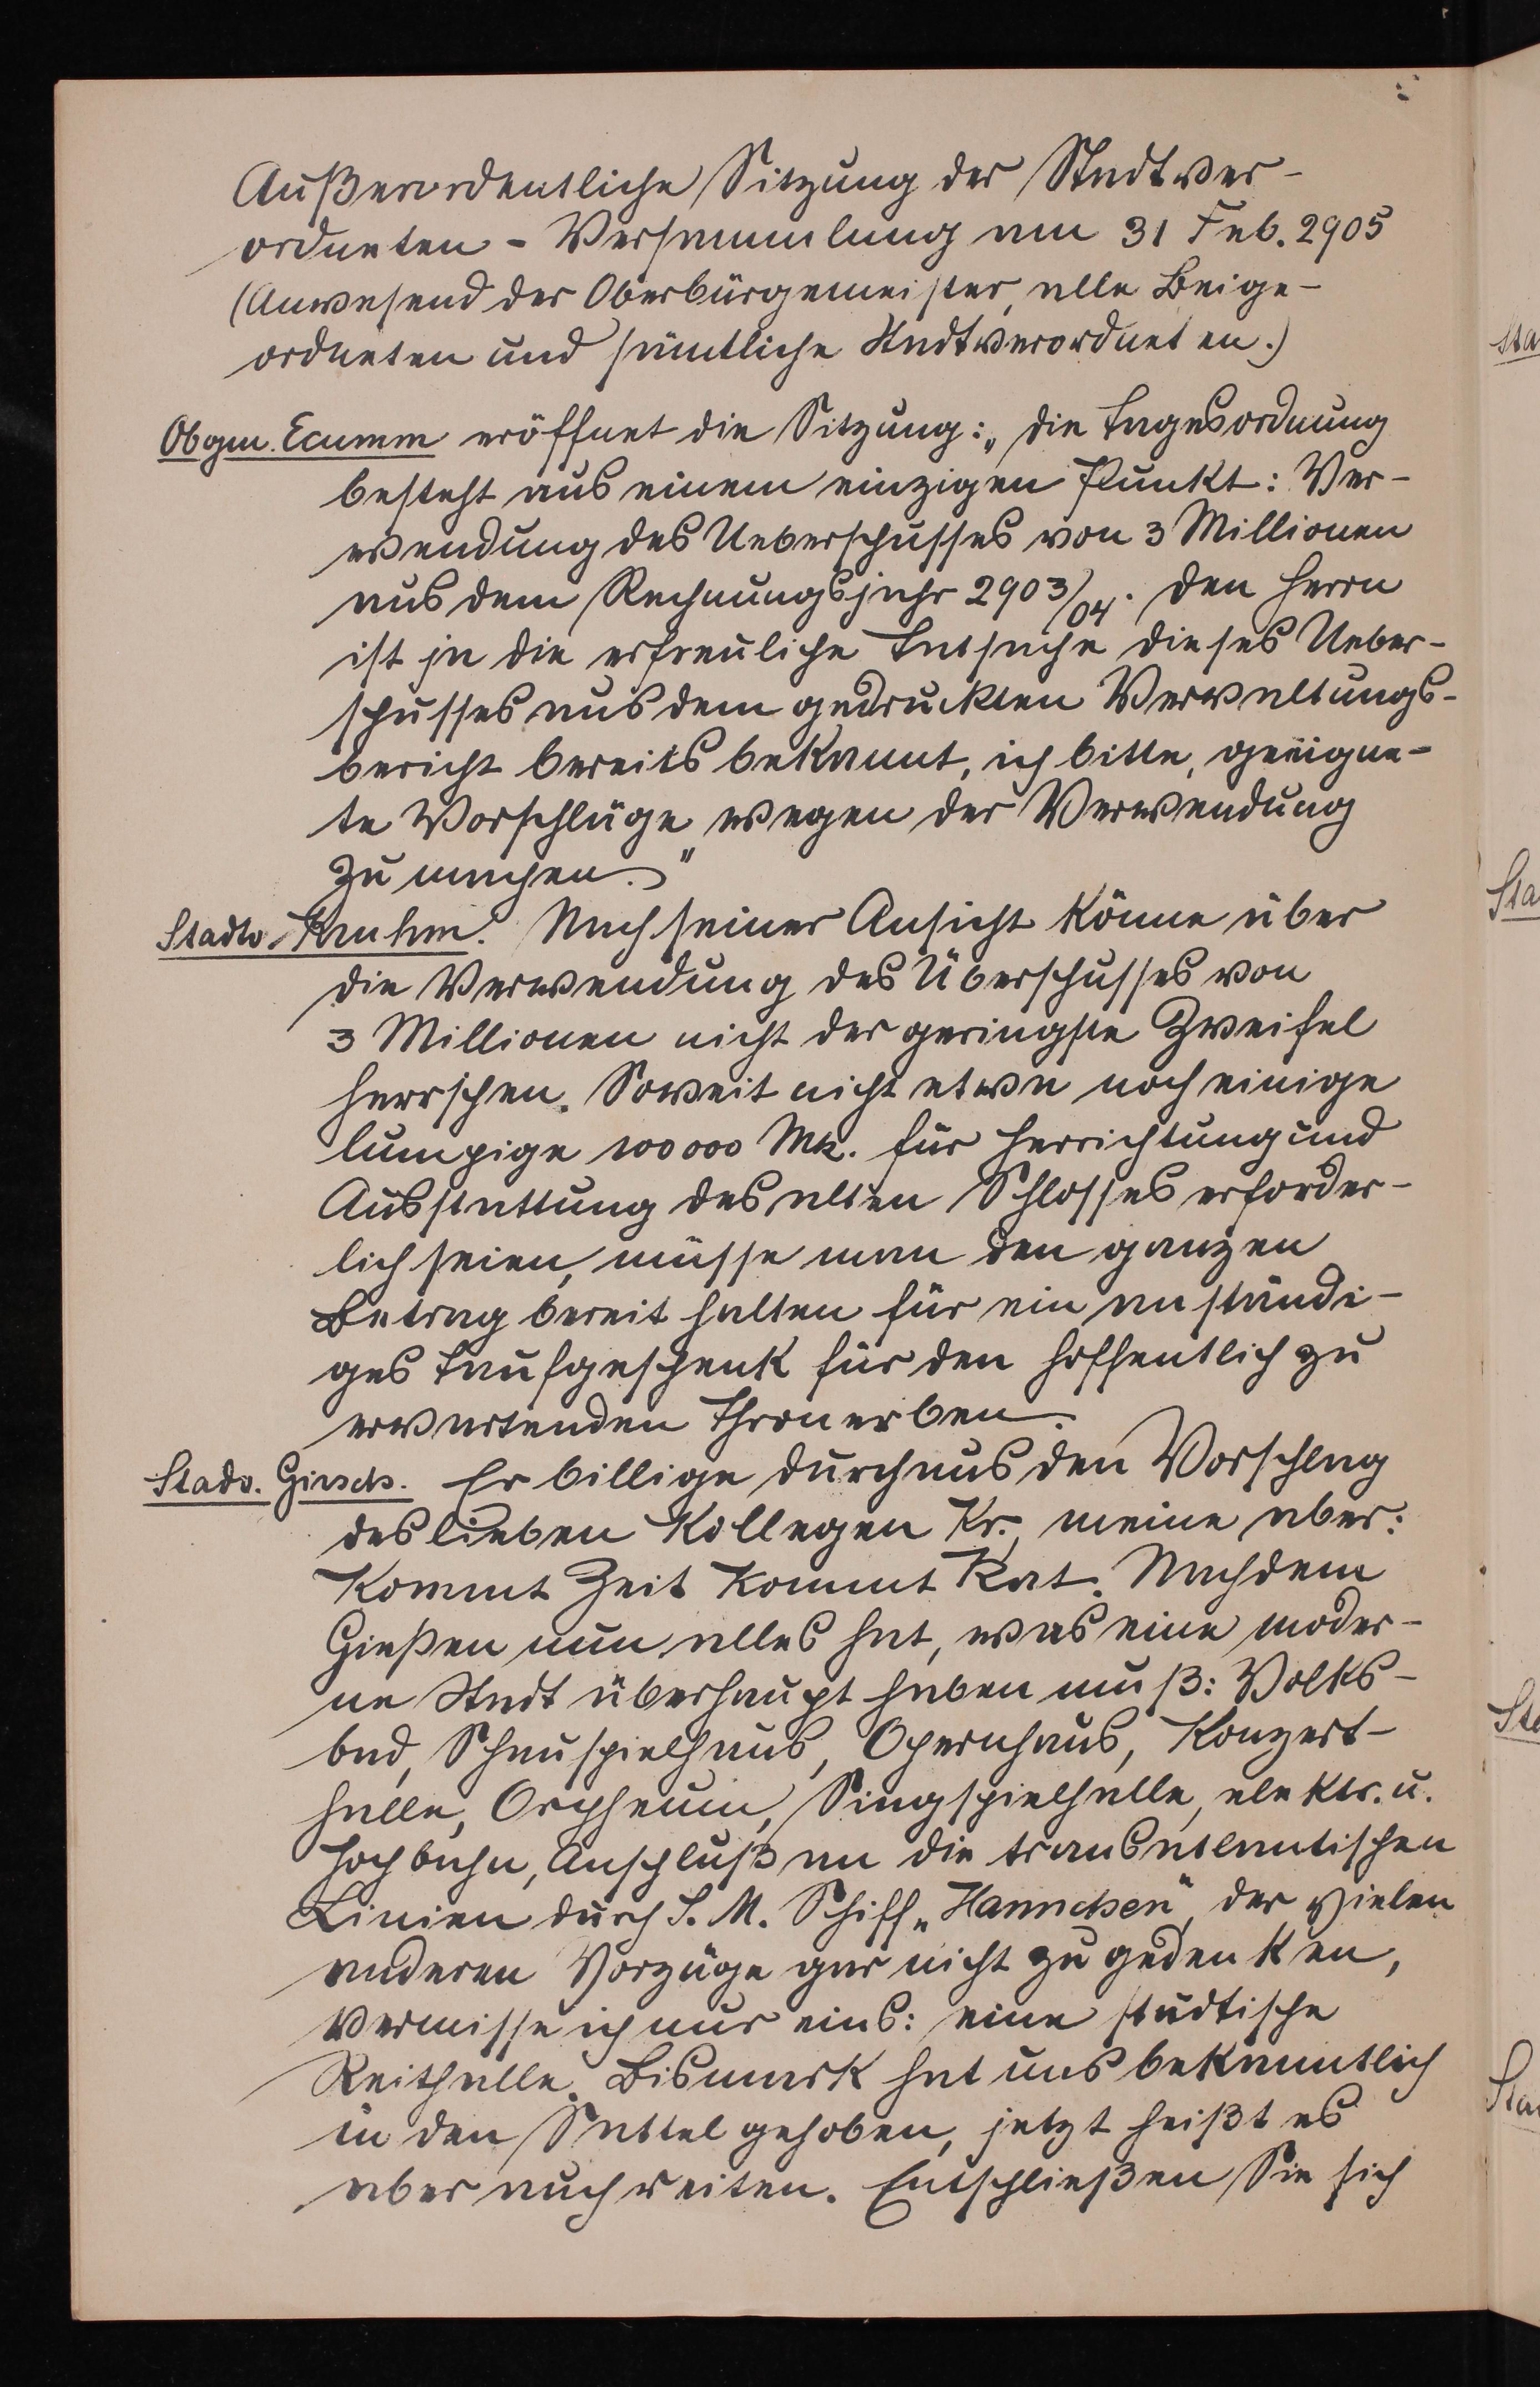 Außerordentliche Sitzung der Stadtver-
ordneten-Versammlung am 31 Feb. 2905
(Anwesend der Oberbürgemeister, alle Beige-
ordneten und sämtliche Stadtverordneten.)
Obgm. Ecumm eröffnet die Sitzung: „Die Tagesordnung
besteht aus einem einzigen Punkt: Ver-
wendung des Ueberschusses von 3 Millionen
aus dem Rechnungsjahr 2903/04. Den Herrn
ist ja die erfreuliche Tatsache dieses Ueber-
schusses aus dem gedruckten Verwaltungs-
bericht bereits bekannt, ich bitte, geeigne-
te Vorschläge wegen der Verwendung
zu machen."
Stadtv. Kruhm. Nach seiner Ansicht könne über
die Verwendung des Überschusses von
3 Millionen nicht der geringste Zweifel
herrschen. Soweit nicht etwa noch einige
lumpige 100000 Mk. für Herrichtung und
Ausstattung des alten Schlosses erforder-
lich seien, müsse man den ganzen
Betrag bereit halten für ein anständi-
ges Taufgeschenk für den hoffentlich zu
erwartenden Thronerben.
Stadv. Girsch. Er billige durchaus den Vorschlag
des lieben Kollegen Kr., meine aber:
Kommt Zeit kommt Rat. Nachdem
Gießen nun alles hat, was eine moder-
ne Stadt überhaupt haben muß: Volks-
bad, Schauspielhaus, Opernhaus, Konzert-
halle, Orpheum, Singspielhalle, elektr. u.
Hochbahn, Anschluß an die transatlantischen
Linien durch S. M. Schiff „Hannchen", der vielen
anderen Vorzüge gar nicht zu gedenken,
vermisse ich nur eins: eine städtische
Reithalle. Bismark hat uns bekanntlich
in den Sattel gehoben, jetzt heißt es
aber auch reiten. Entschließen Sie sich